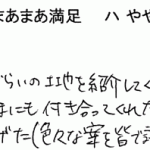 まあまあ満足　ハ やや
ぐらいの土地を紹介してく
にも付き合ってくれた
げた(色々な案を皆で